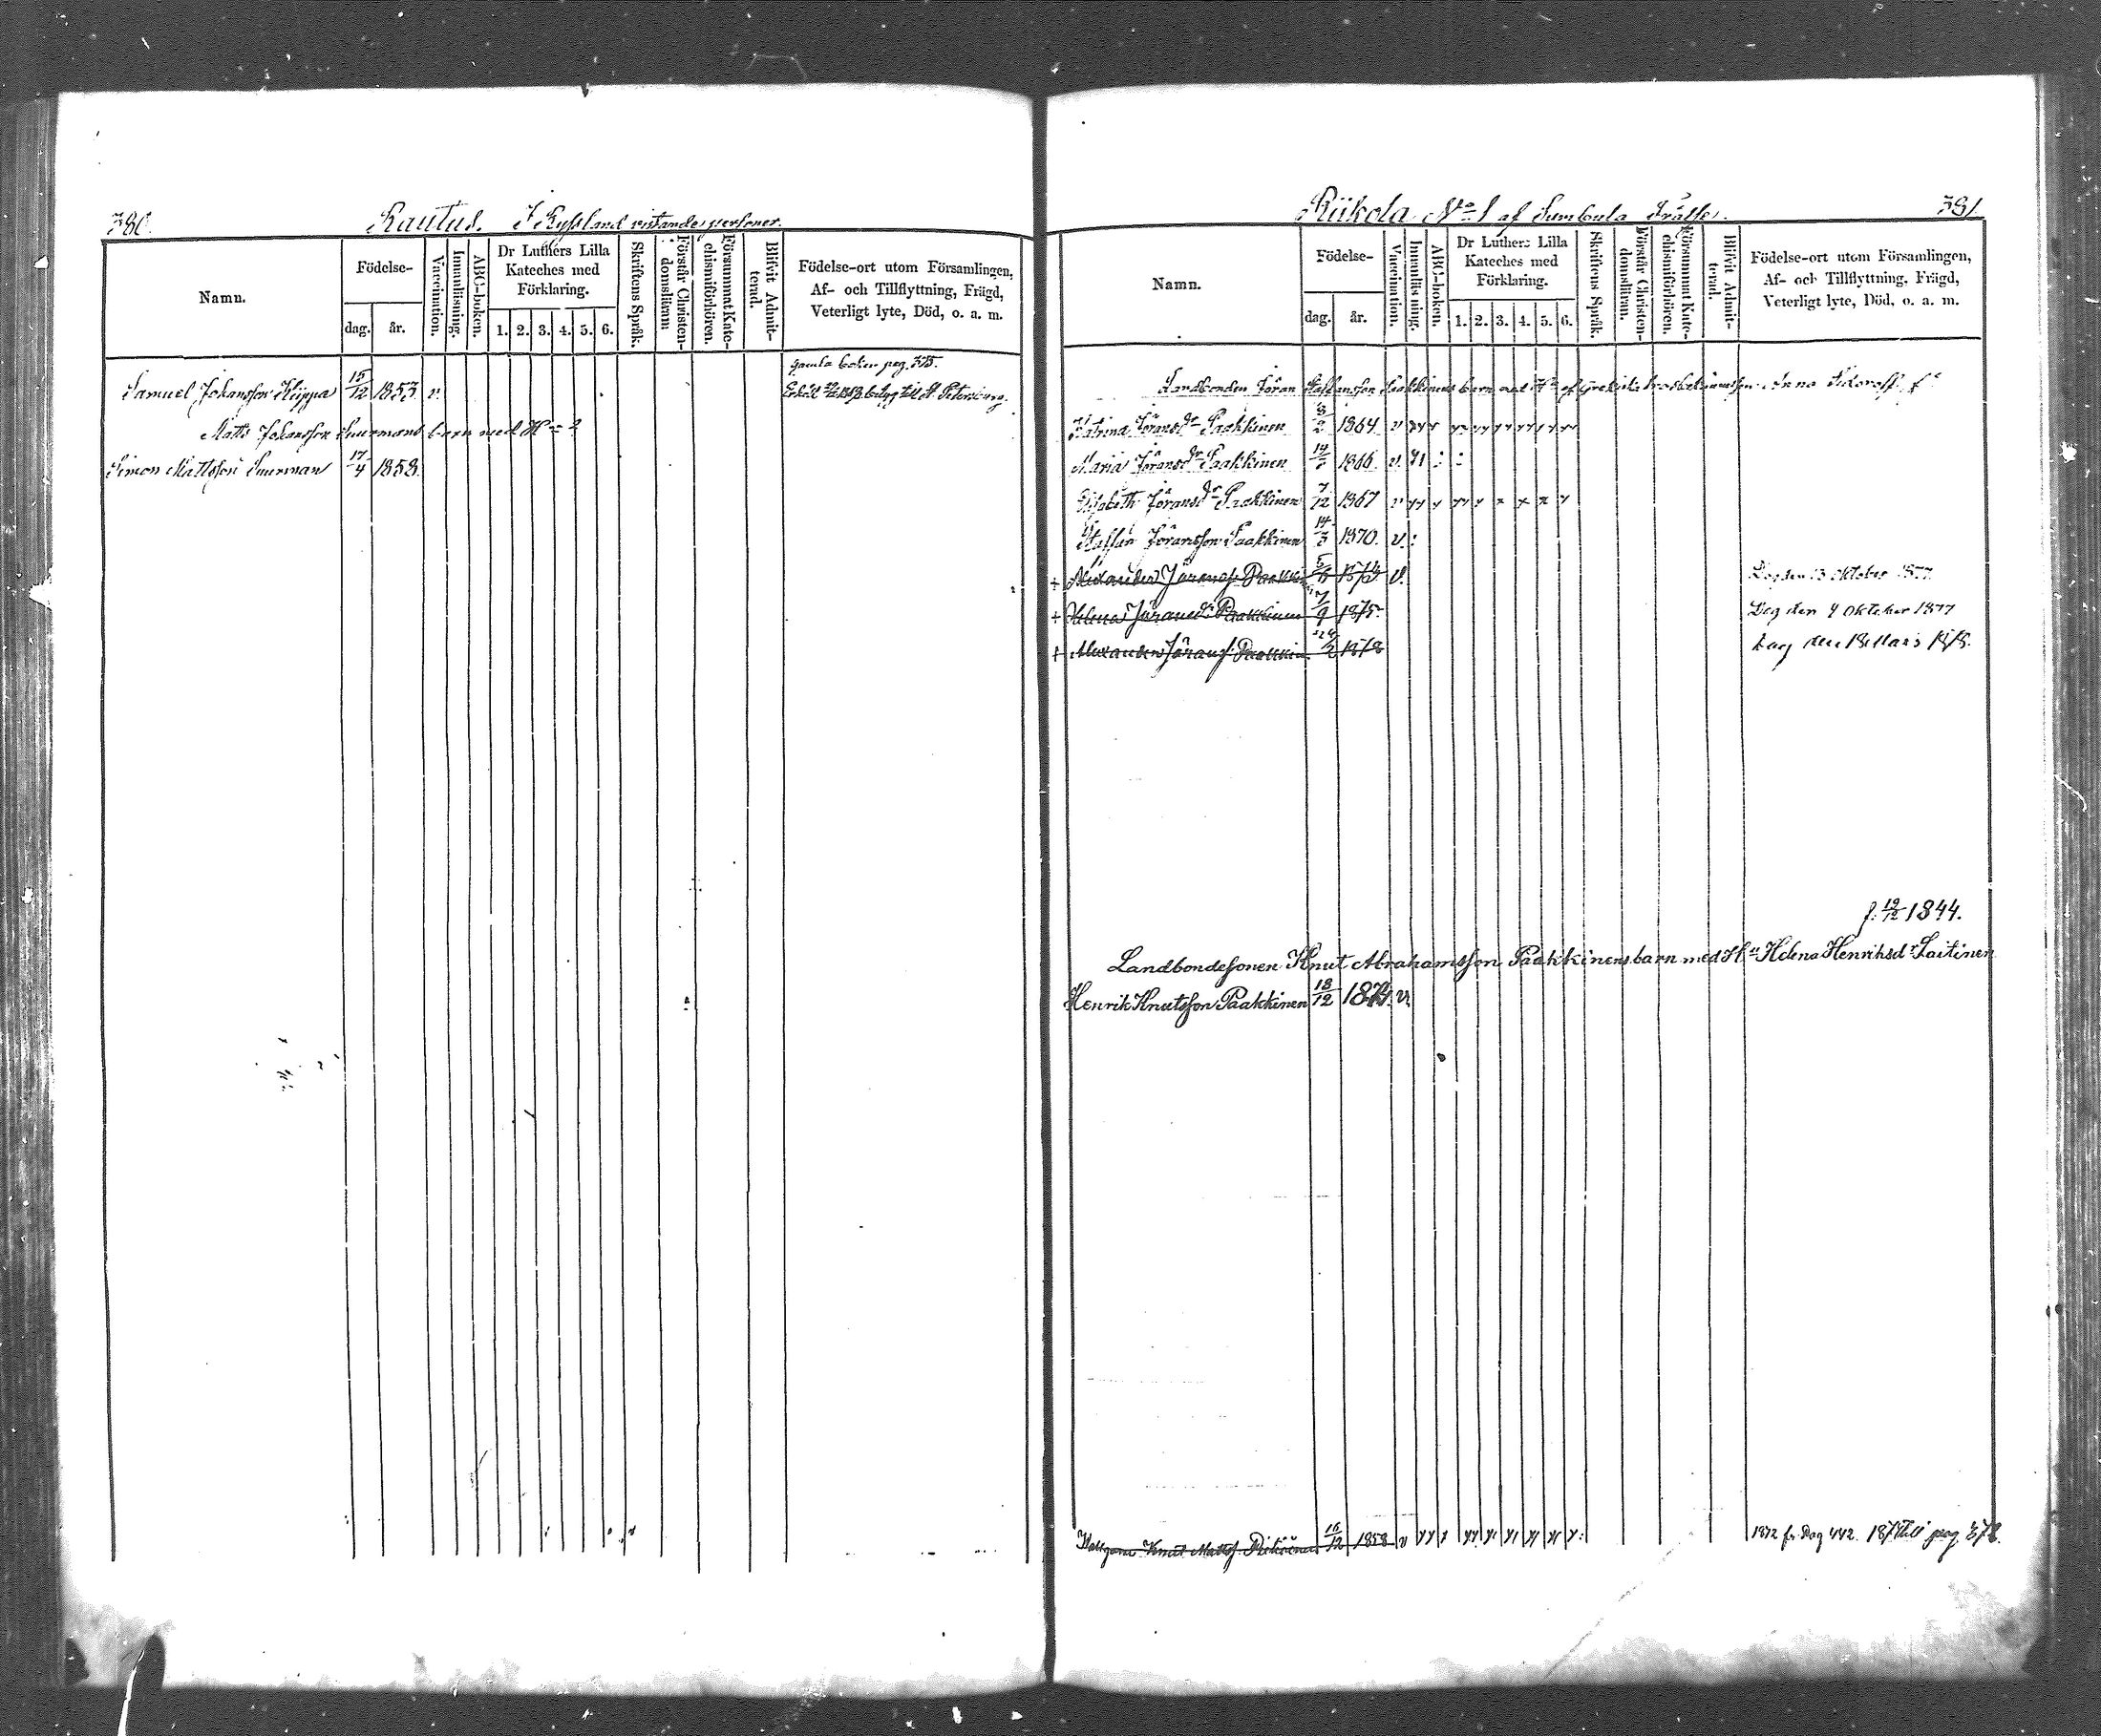 380.
Rautus. I Ryssland vistande personer.
Namn.
Födelse-
dag.
år.
Vaccination.
Innanläsning.
ABC-boken.
Dr Luthers Lilla
Kateches med
Förklaring.
1. 2. 3. 4. 5. 6.
Skriftens Språk.
Förstår Christen-
domsläran
Försummat Kate-
chismiförhören.
Blifvit Admit-
terad.
Födelse-ort utom Församlingen,
Af- och Tillflyttning, Frägd,
Veterligt lyte, Död, o. a. m.
gamla boken pag. 375.
Samuel Johansson Kiippa 15/12 1853 v. betyg till St Petersburg.
Matts Johansson Suurmans barn med H
Simon Mattsson Suurman 17/4 1858.
Riikola No 1 af Sumbula Frälse.
381.
Namn.
Födelse-
dag.
år.
Vaccination.
Innanläsning.
ABC-boken.
Dr Luthers Lilla
Kateches med
Förklaring.
1. 2. 3. 4. 5. 6.
Skriftens Språk.
Förstår Christen-
domsläran.
Försummat Kate-
chismiförhören.
Blifvit Admit-
terad.
Födelse-ort utom Församlingen,
Af- och Tillflyttning, Frägd,
Veterligt lyte, Död, o. a. m.
Landbonden Jöran Staffansson Paakkinens barn med H af grekiska Anna
Katrina Joransdr Paakkinen 8/2 1864 v
Maria Joransdr Paakkinen 1866. v.
Elisabeth Joransdr Paakkinen 7/12 1867 v
Staffan Joransson Paakkinen 14/3 1870. v.
+ Alexander Jöranss. v. 13 oktober 1877
+ Helena Joransdr Paakkinen 7/9 1875. Dog den 9 Oktober 1877
+ Alexander Jöranss. 1878 Dog den 18 Mars 1878.
f. 19/12 1844.
Landbondesonen Knut Abrahamsson Paakkinens barn med H Helena Henriksdr Laitinen
Henrik Knutsson Paakkinen 18/12 1874. v.
Knut Matts. 16/12 1858 v 1872 fr. Pag 442. 187 till pag. 378.